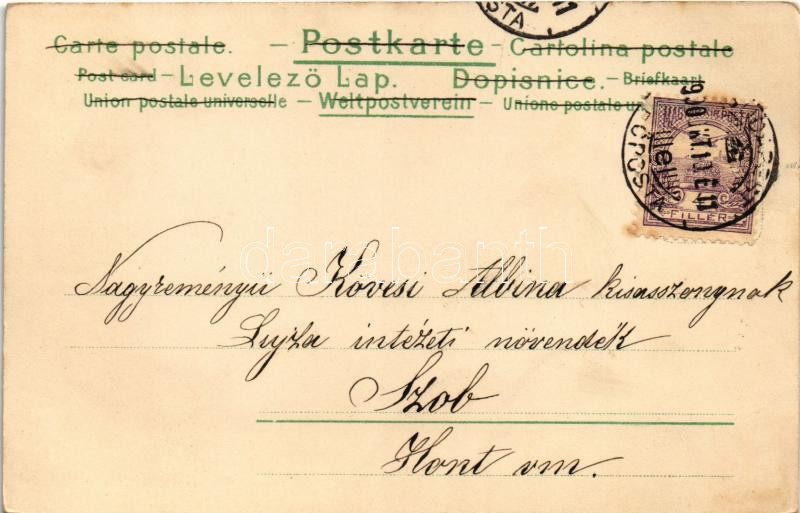 Carte postale. – Postkarte – Cartolina postale
Post card – Levelező Lap. Dopisnice. – Briefkaart
Union postale universelle – Weltpostverein – Unione postale
FILLÉR
darabanth
Nagyreményü Kövesi Albina kisasszonynak
Lujza intézeti növendék
Szob
Hont vm.